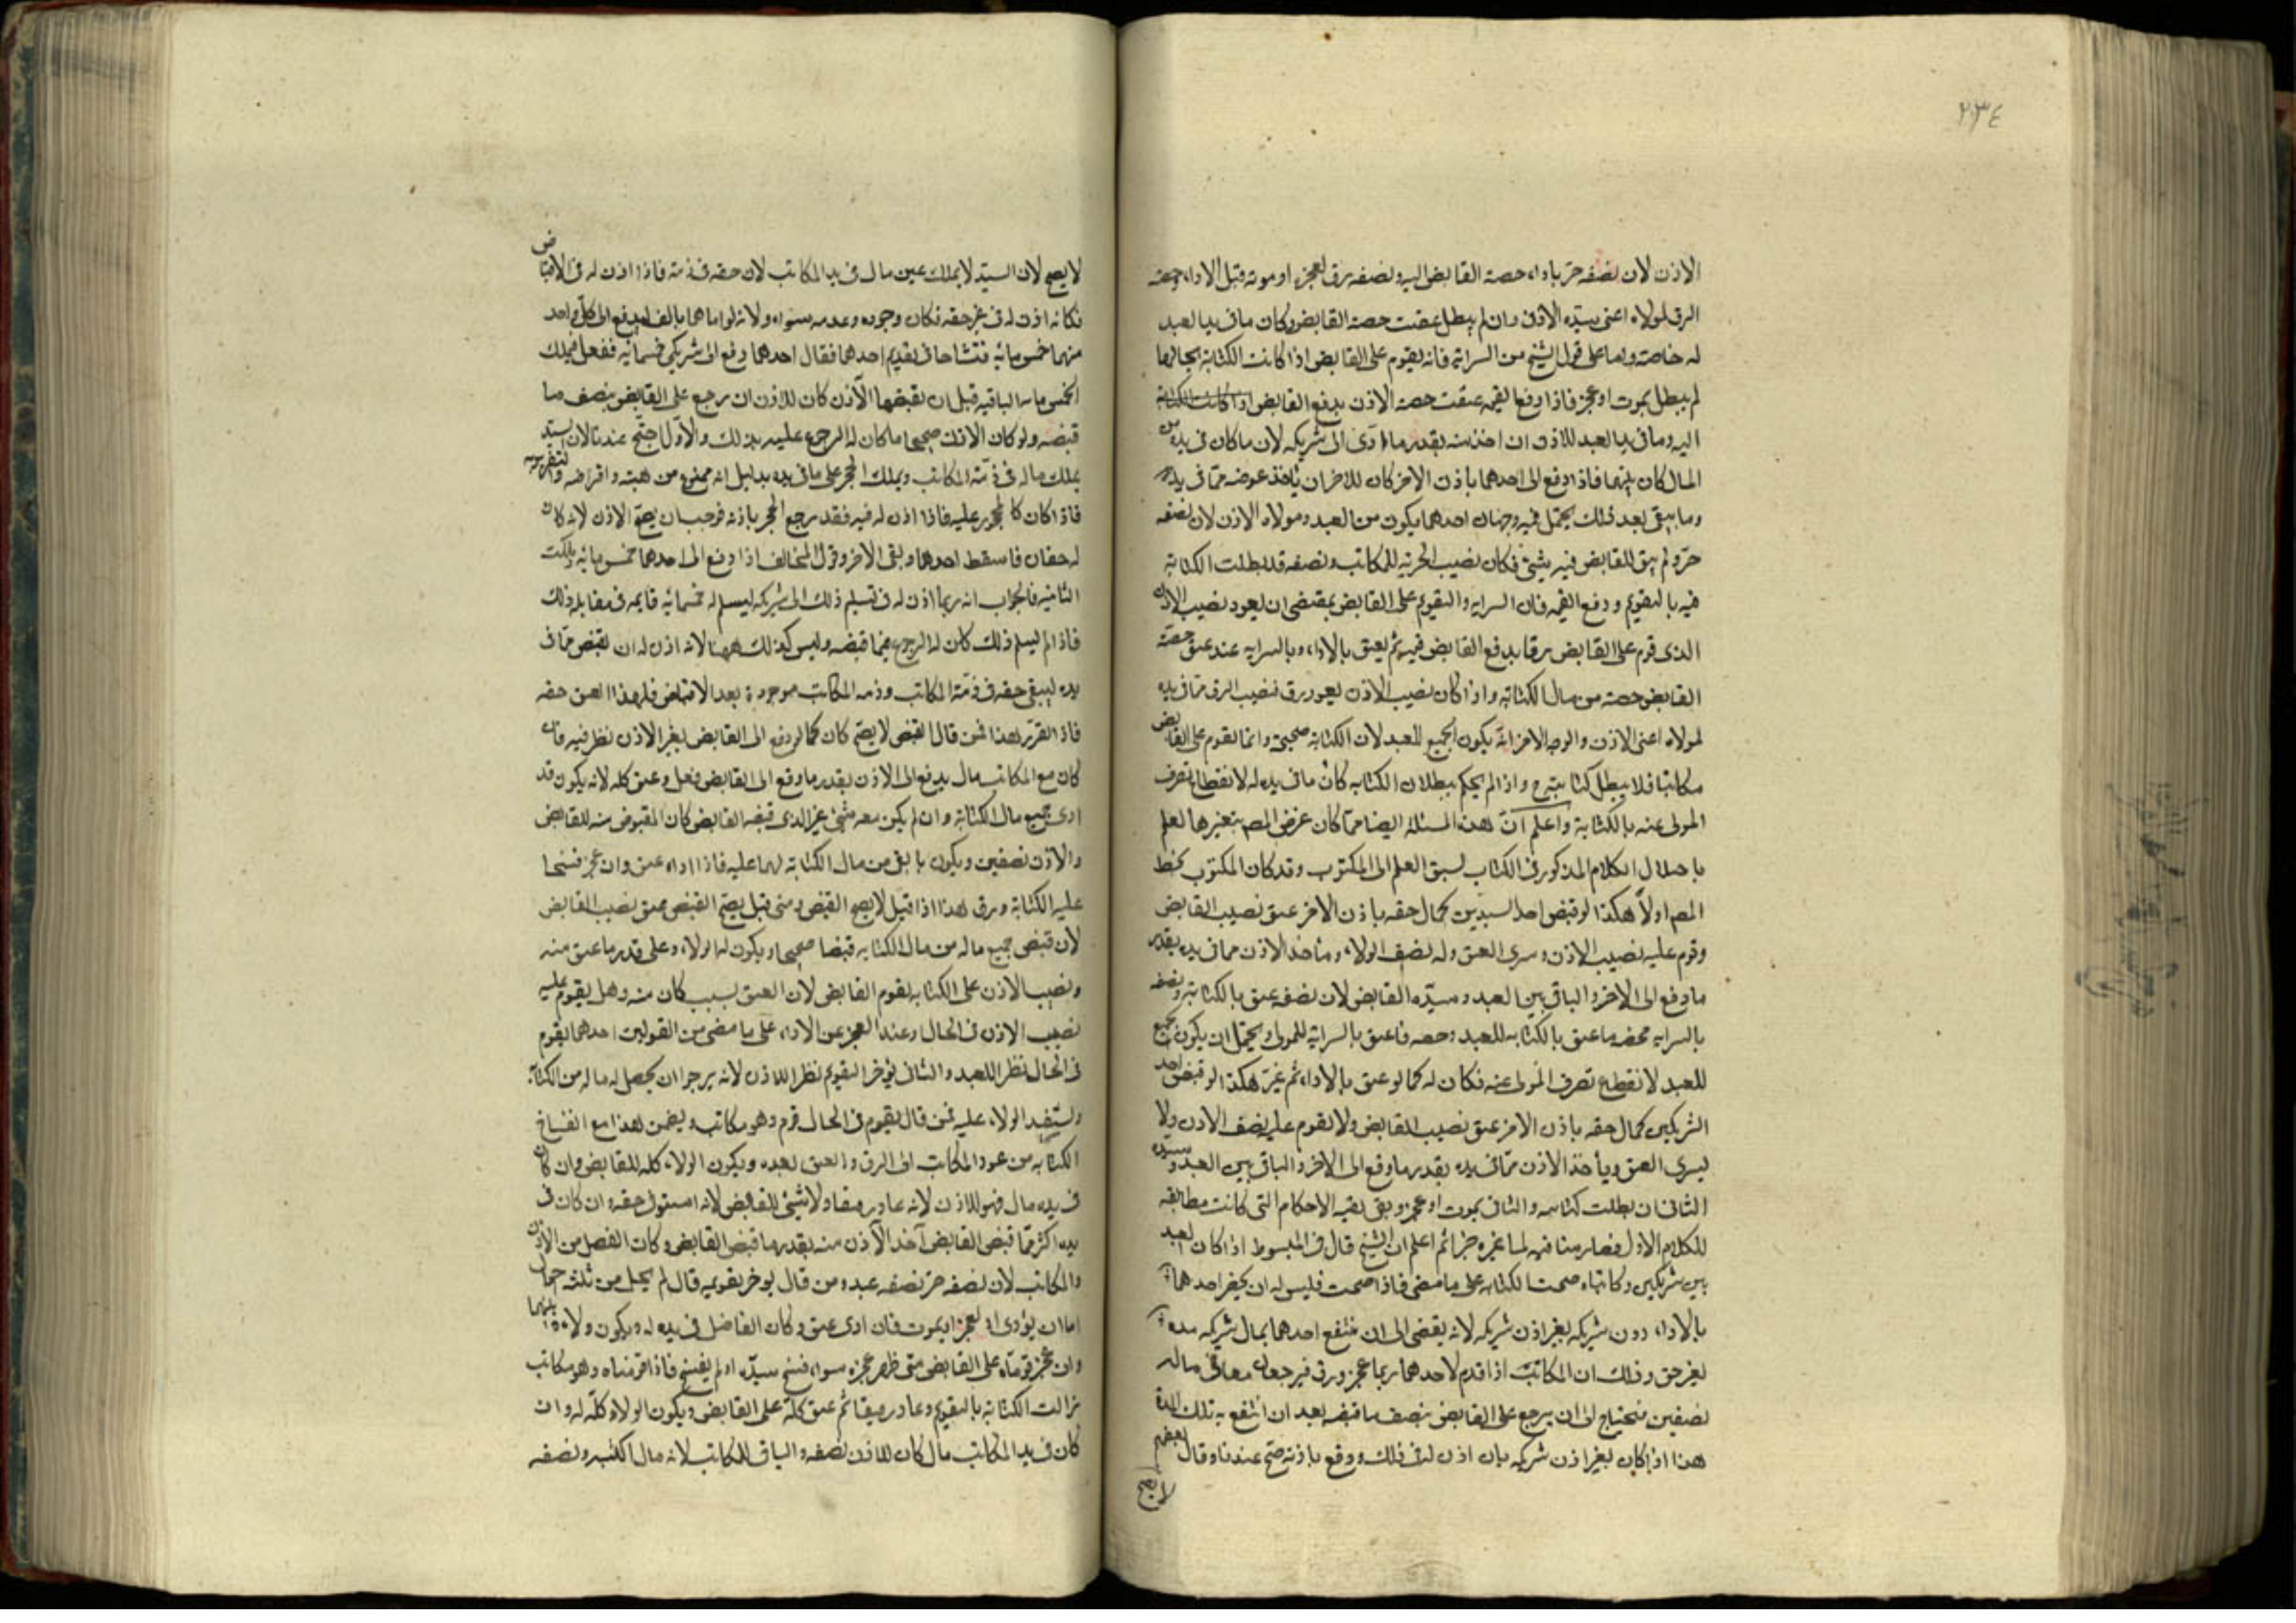 ٢٣٤
الاذن لان نصفه حر باداء حصة القابض اليه ونصفه رق لعجزه او موته قبل الاداء وحصة
الرق لمولاه اعنى سيده الاذن وان لم يبطل عتقت حصة القابض وكان ما فى يد العبد
له خاصة واما على قول الشيخ من السراية فانه يقوم على القابض اذا كانت الكتابة بحالها
لم يبطل بموت او عجز فاذا دفع القيمه عتقت حصة الاذن بدفع القابض اذا كانت الكتابة
اليه وما فى يد العبد للاذن ان اخذ منه بقدر ما ادى الى شريكه لان ما كان فى يده من
المال كان بينهما فاذا دفع الى احدهما باذن الاخر كان للاخر ان ياخذ عوضه مما فى يده
وما يبقى بعد ذلك يحتمل فيه وجهان احدهما يكون من العبد ومولاه الاذن لان نصفه
حر ولم يبق للقابض فيه شئ فكان نصيب الحرية للمكاتب ونصفه قد بطلت الكتابة
فيه بالتقويم ودفع القيمه فان السراية والتقويم على القابض يقتضى ان يعود نصيب الاذن
الذى قوم على القابض رقا بدفع القابض قيمته ثم يعتق بالاداء وبالسراية عند عتق حصة
القابض حصته من مال الكتابة واذا كان نصيب الاذن يعود رق فنصيب الرق مما فى يده
لمولاه اعنى الاذن والوجه الاخر انه يكون الجميع للعبد لان الكتابة صحيحة وانما يقوم على القابض
مكاتبا فلا يبطل كتابته ح واذا لم يحكم ببطلان الكتابه كان ما فى يده له لانقطاع تصرف
المولى عنه بالكتابة واعلم ان هذه المسئلة ايضا مما كان غرض المصـ بتغيرها لعلم
باختلال الكلام المذكور فى الكتاب لسبق العلم الى المكتوب وقد كان المكتوب بخط
المصـ اولا هكذا لو قبض احد السيدين كمال حقه باذن الاخر عتق نصيب القابض
وقوم عليه نصيب الاذن وسرى العتق وله نصف الولاء وياخذ الاذن مما فى يده بقدر
ما دفع الى الاخر والباقى بين العبد وسيده القابض لان نصفه عتق بالكتابة ونصفه
بالسراية فحصه ما عتق بالكتابه للعبد وحصه ما عتق بالسراية للمولى ويحتمل ان يكون الجميع
للعبد لانقطاع تصرف المولى عنه فكان له كما لو عتق بالاداء ثم غيره هكذا لو قبض احد
الشريكين كمال حقه باذن الاخر عتق نصيب القابض ولا يقوم عليه نصف الاذن ولا
يسرى العتق ويأخذ الاذن مما فى يده بقدر ما دفع الى الاخر والباقى بين العبد وسيده
الثانى ان بطلت كتابته والثانى بموت او عجز وبقى بقيه الاحكام التى كانت مطابقه
للكلام الاول فصار منافيه لما غيره اعلم ان الشيخ قال فى المبسوط اذا كان العبد
بين شريكين وكاتباه صحت الكتابه على ما مضى فاذا صحت فليس له ان يخص احدهما
بالاداء دون شريكه بغير اذن شريكه لانه يفضى الى ان ينتفع احدهما بمال شريكه مدة
بغير حق وذلك ان المكاتب اذا قدم لاحدهما ربما عجز ورق فيرجعان معا فى ماله
نصفين فيحتاج الى ان يرجع على القابض بنصف ما قبضه بعد ان انتفع به تلك المدة
هذا اذا كان بغير اذن شريكه فان اذن له فى ذلك ودفع باذنه صح عندنا وقال بعضهم
لا يصح
لا يصح لان السيد لا يملك عين مال فى يد المكاتب لان حقه فى ذمته فاذا اذن له فى الاقباض
فكانه اذن له فى غير حقه فكان وجوده وعدمه سواء ولانه لو اتاهما بالف ليدفع الى كل واحد
منهما خمس مائة فتشاحا فى تقديم احدهما فقال احدهما ادفع الى شريكى خمسمائة ففعل فهلك
الخمس مائة الباقيه قبل ان يقبضها الاذن كان للاذن ان يرجع على القابض بنصف ما
قبضه ولو كان الاذن صحيحا ما كان له الرجوع عليه بذلك والاول اصح عندنا لان السيد
يملك ماله فى ذمة المكاتب ويملك الحجر على ما فى يده بدليل انه ممنوع من هبته واقراضه والتغرير به
فاذا كان كالمحجور عليه فاذا اذن له فيه فقد رجع الحجر باذنه فوجب ان يصح الاذن لانه كان
له حقان فاسقط احدهما وبقى الاخر وقول المخالف اذا دفع الى احدهما خمس مائة وهلكت
الثانيه فالجواب انه ربما اذن له فى تسليم ذلك الى شريكه ليسلم له خمسمائة قايمه فى مقابلة ذلك
فاذا لم يسلم ذلك كان له الرجوع فيما قبضه وليس كذلك ههنا لانه اذن له ان يقبض مما فى
يده ليبقى حقه فى ذمة المكاتب وذمة المكاتب موجودة بعد الاقباض فلهذا العتق حقه
فاذا تقرر هذا فمن قال القبض لا يصح كان كما لو دفع الى القابض بغير الاذن نظر فيه فان
كان مع المكاتب مال يدفع الى الاذن بقدر ما دفع الى القابض فعل وعتق كله لانه يكون قد
ادى جميع مال الكتابة وان لم يكن معه شئ غير الذى قبضه القابض كان المقبوض منه للقابض
والاذن نصفين ويكون ما بقى من مال الكتابة لهما عليه فاذا اداه عتق وان عجز فسخا
عليه الكتابة ورق هذا اذا قيل لا يصح القبض ومتى قيل يصح القبض عتق نصيب القابض
لان قبض جميع ماله من مال الكتابه قبضا صحيحا ويكون له الولاء وعلى قدر ما عتق منه
ونصيب الاذن على الكتابه يقوم القابض لان العتق بسبب كان منه وهل يقوم عليه
نصيب الاذن فى الحال او عند العجز عن الاداء على ما مضى من القولين احدهما يقوم
فى الحال نظرا للعبد والثانى يؤخر التقويم نظرا للاذن لانه يرجو ان يحصل له ماله من الكتابة
ويستفيد الولاء عليه فمن قال يقوم فى الحال قوم وهو مكاتب ويضمن هذا مع انفساخ
الكتابه من عود المكاتب الى الرق والعتق بعده ويكون الولاء كله للقابض وان كان
فى يده مال فهو للاذن لانه عاد رقيقا ولا شئ للقابض لانه استوفى حقه وان كان فى
يده اكثر مما قبض القابض اخذ الاذن منه بقدر ما قبض القابض وكان الفضل من الاذن
والمكاتب لان نصفه حر نصفه عبد ومن قال يؤخر تقويمه قال لم يخل من ثلثه احوال
اما ان يؤدى او يعجز او يموت فان ادى عتق وكان الفاضل فى يده له ويكون ولاءه بينهما
وان عجز قومناه على القابض متى ظهر عجزه سواء فسخ سيده او لم يفسخ فاذا قومناه وهو مكاتب
زالت الكتابة بالتقويم وعاد رقيقا ثم عتق كله على القابض ويكون الولاء كله له وان
كان فى يد المكاتب مال كان للاذن نصفه والباقى للمكاتب لانه مال اكتسبه ونصفه